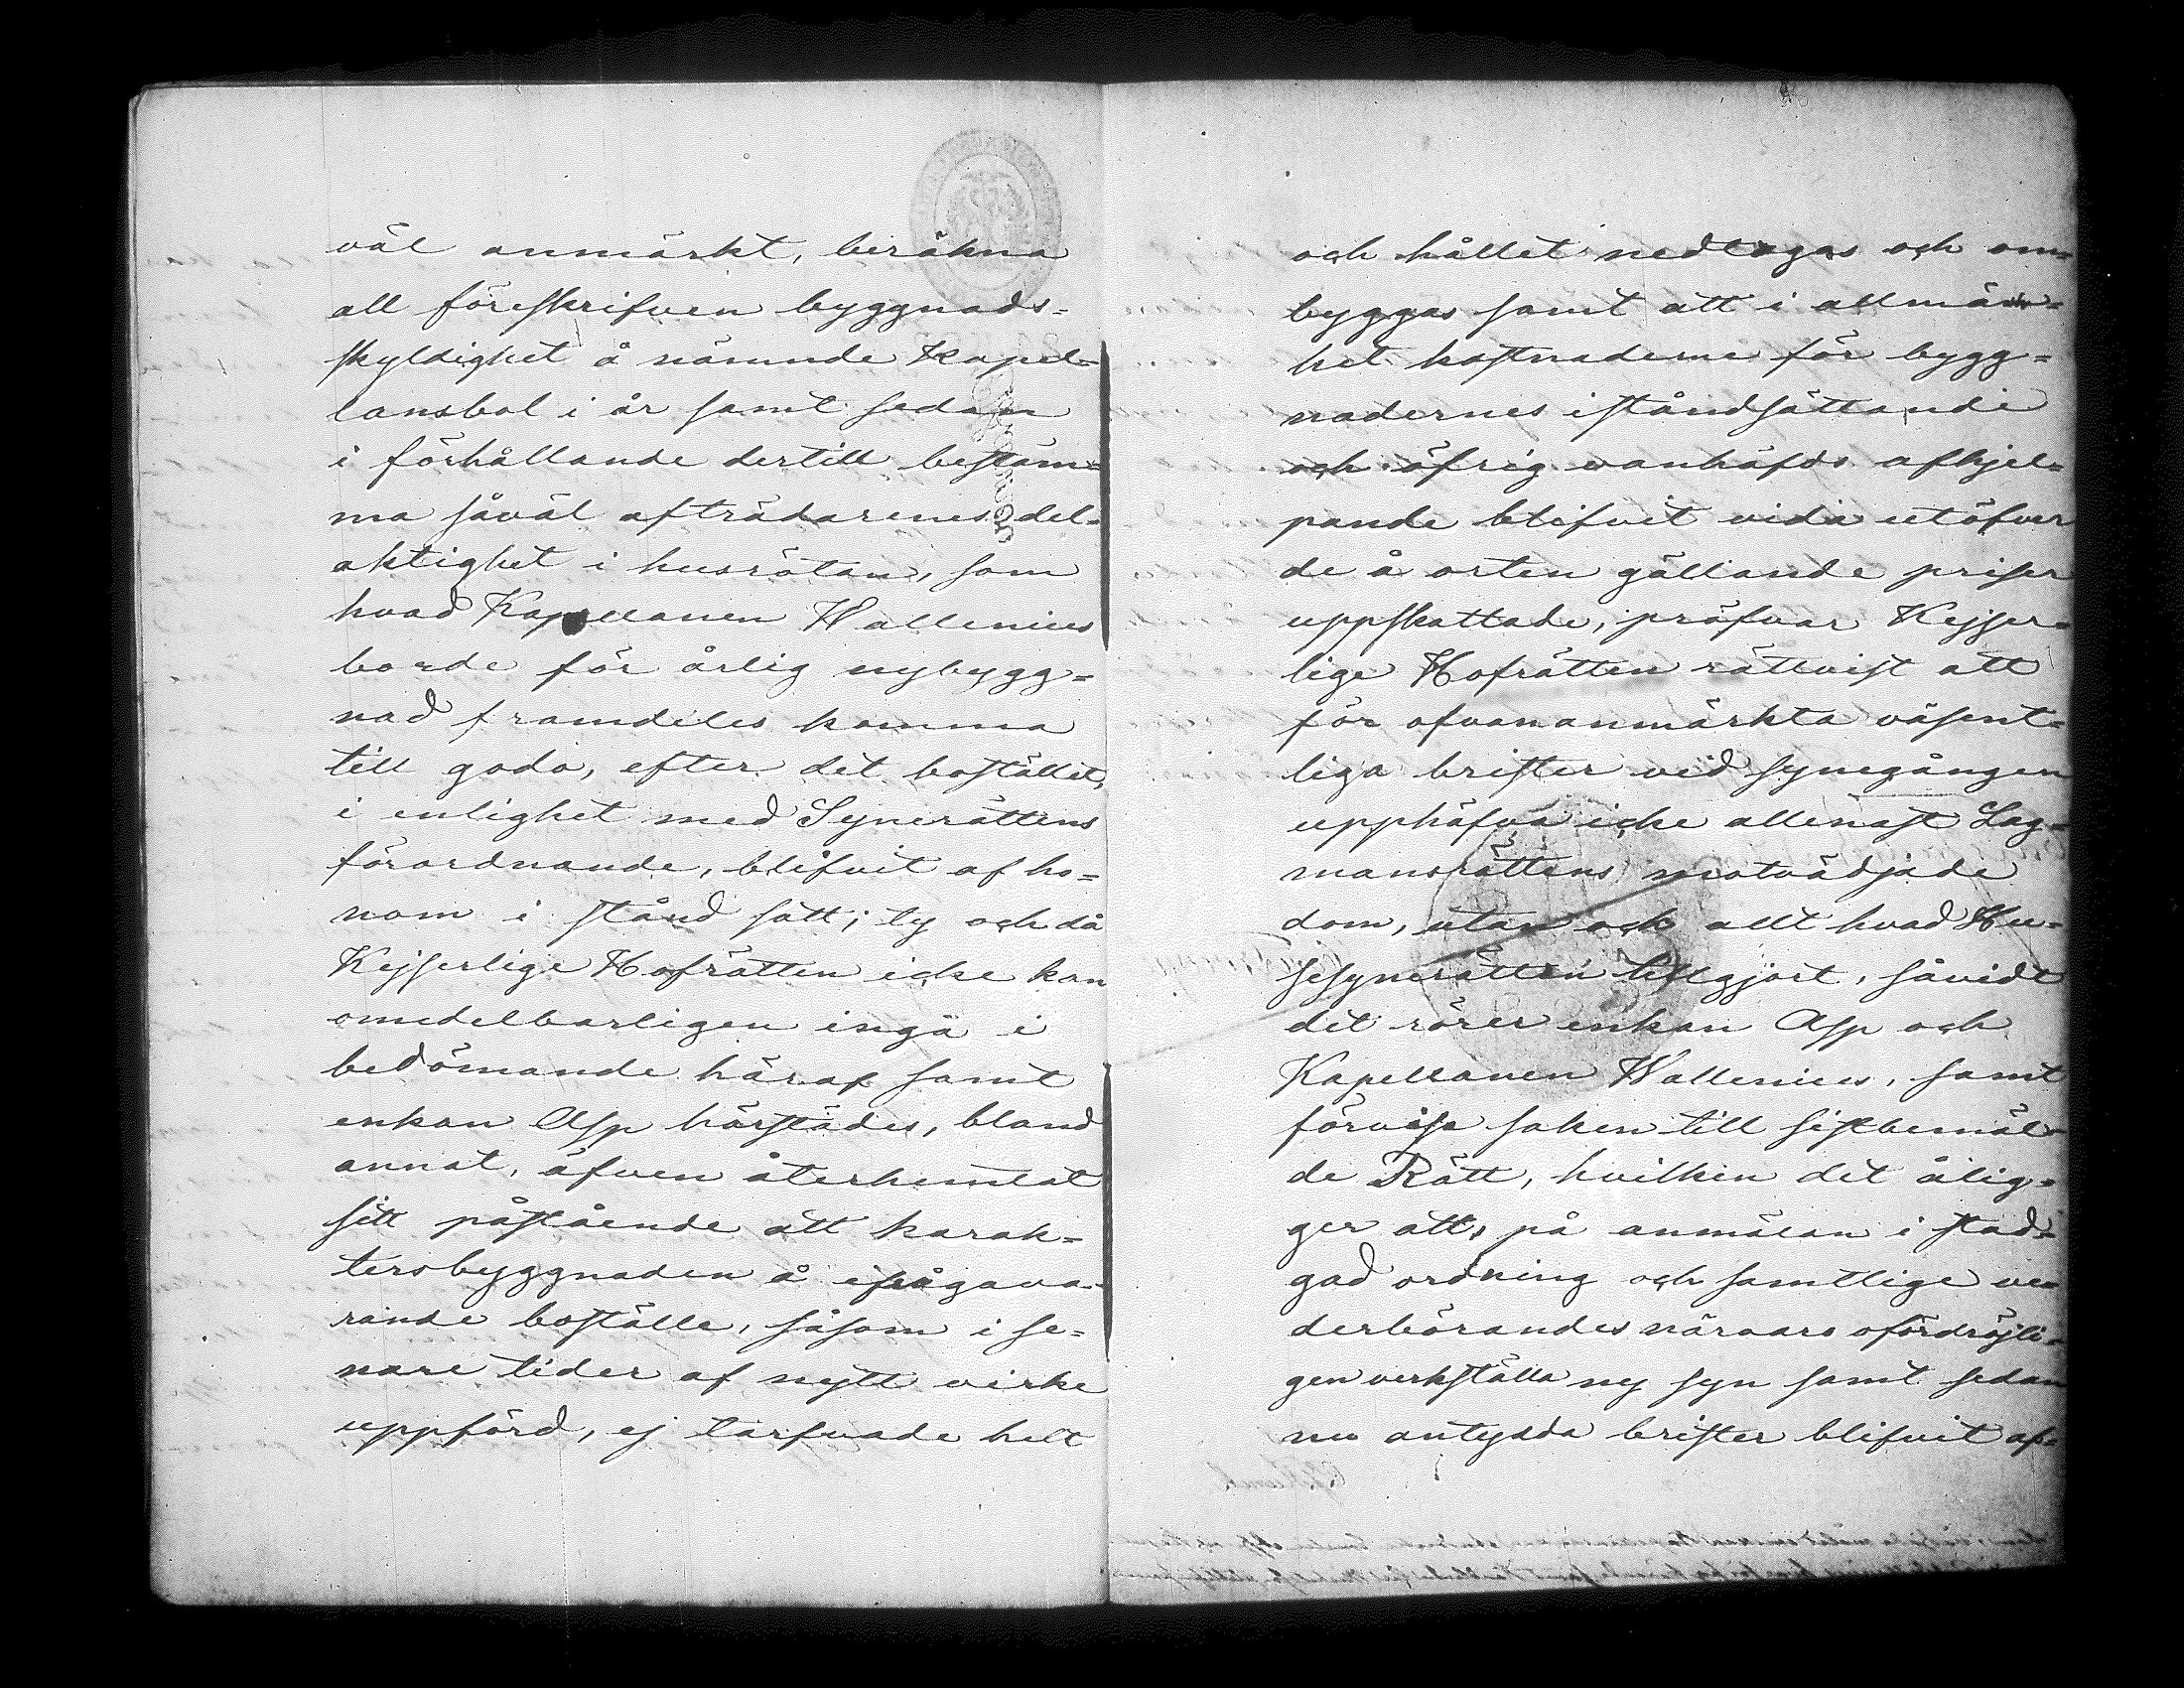 väl anmärkt, beräkna
all föreskrifven byggnads=
skyldighet å nämnde Kapel=
lansbol i år samt sedan
i förhållande dertill bestäm=
ma såväl afträdarenes del=
aktighet i husrötan, som
hvad Kapellanen Wallenius
borde för årlig nybygg=
nad framdeles komma
till godo, efter det bostället,
i enlighet med Synerättens
förordnande, blifvit af ho=
nom i stånd satt; ty och då
Kejserlige Hofrätten icke kan
omedelbarligen ingå i
bedömande häraf samt
enkan Asp härstädes, bland
annat, äfven återhemtat
sitt påstående att karak=
tersbyggnaden å ifrågava=
rande boställe, såsom i se=
nare tider af nytt virke
uppförd, ej tarfvade helt
och hållet nedtagas och om=
byggas samt att i allmän=
het kostnaderne för bygg=
nadernes iståndsättande
och öfrig vanhäfds afhjel=
pande blifvit vida utöfver
de å orten gällande priser
uppskattade, pröfvar Kejser=
lige Hofrätten rättvist att
för ofvananmärkta väsent=
liga brister vid synegången
upphäfva icke allenast Lag=
mansrättens motvädjade
dom, utan ock allt hvad Hu=
sesynerätten tillgjort, såvidt
det rörer enkan Asp och
Kapellanen Wallenius, samt
förvisa saken till sistbemäl=
de Rätt, hvilken det ålig=
ger att, på anmälan i stad=
gad ordning och samtlige ve=
derbörandes närvaro ofördröjli=
gen verkställa ny syn samt sedan
nu antydda brister blifvit af=